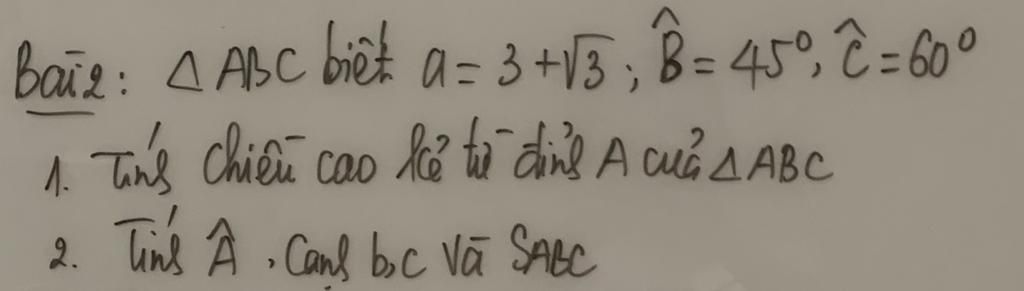 Bài 2: △ABC biết a = 3 + √3 ; B̂ = 45°, Ĉ = 60°
1. Tính chiều cao kẻ từ đỉnh A của △ABC
2. Tính Â, Cạnh b,c và SABC